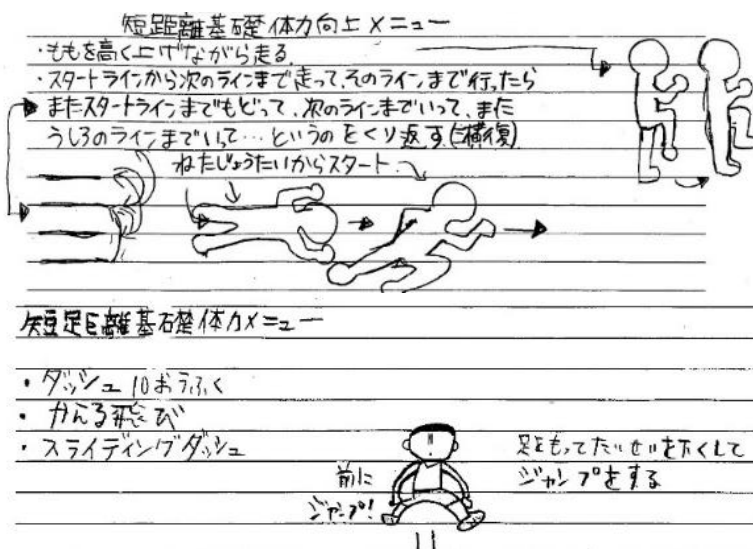 短距離基礎体力向上メニュー
・ももを高く上げながら走る
・スタートラインから次のラインまで走って、そのラインまで行ったら
またスタートラインまでもどって、次のラインまでいって、また
うしろのラインまでいって…というのをくり返す。(横復)
ねたじょうたいからスタート
短距離基礎体力メニュー
・ダッシュ10おうふく
・かえる飛び
・スライディングダッシュ
前に
ジャンプ!
足をもってたいせいを下くして
ジャンプをする